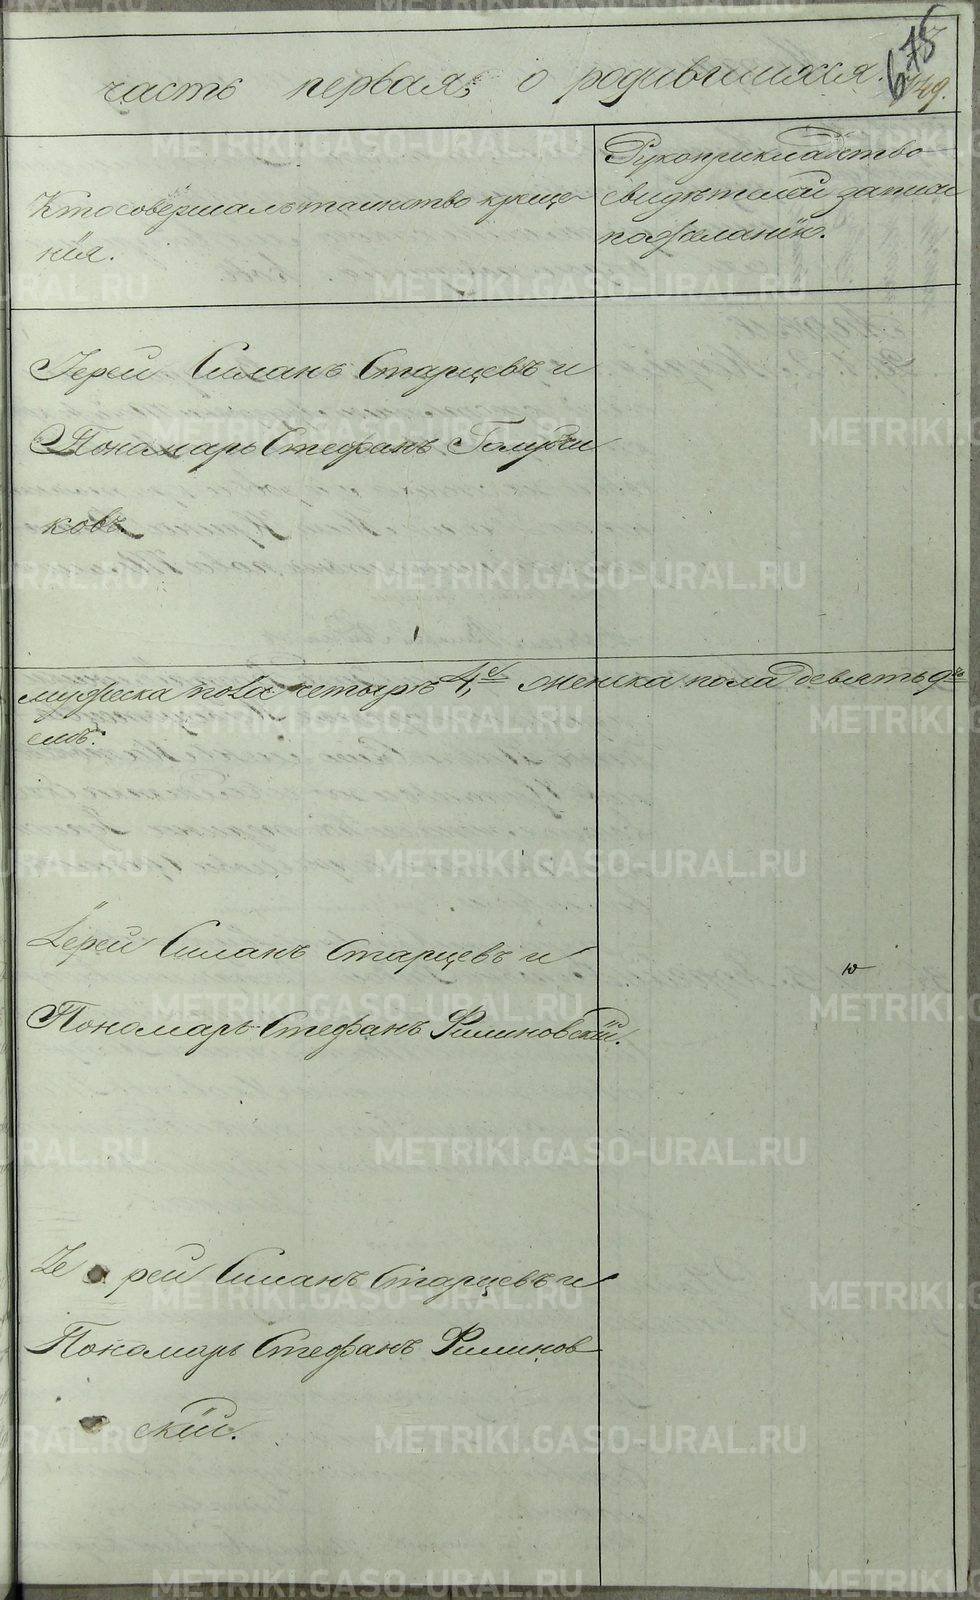 675
149.
часть первая, о родившихся.
Кто совершалъ таинство креще-
нія.
Рукоприкладство
свидѣтелей записи
по желанію.
Іерей Силанъ Старцевъ и
Пономарь Стефанъ
ковъ.
мужеска пола четыре 4, женска пола девять 9
Іерей Силанъ Старцевъ и
Пономарь Стефанъ Филиновскій.
Іе рей Силанъ Старцевъ и
Пономарь Стефанъ Филинов
скій.
METRIKI.GASO-URAL.RU